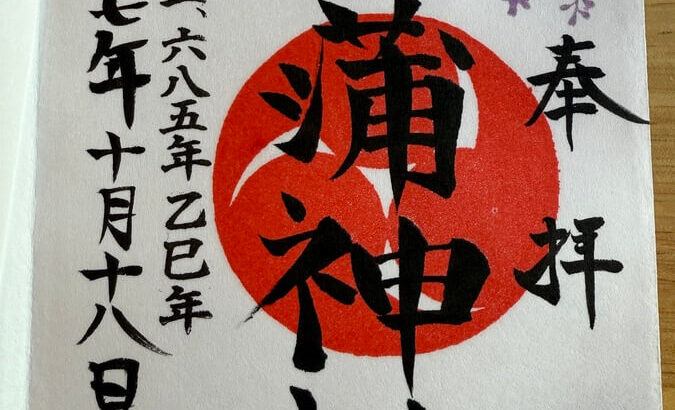 奉拝
蒲神
、六八五年乙巳年
七年十月十八日